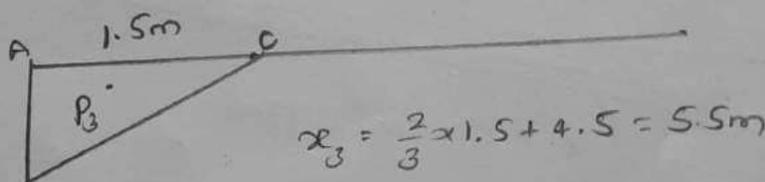 1.5m
A C
P₃
x₃ = 2/3 x 1.5 + 4.5 = 5.5m